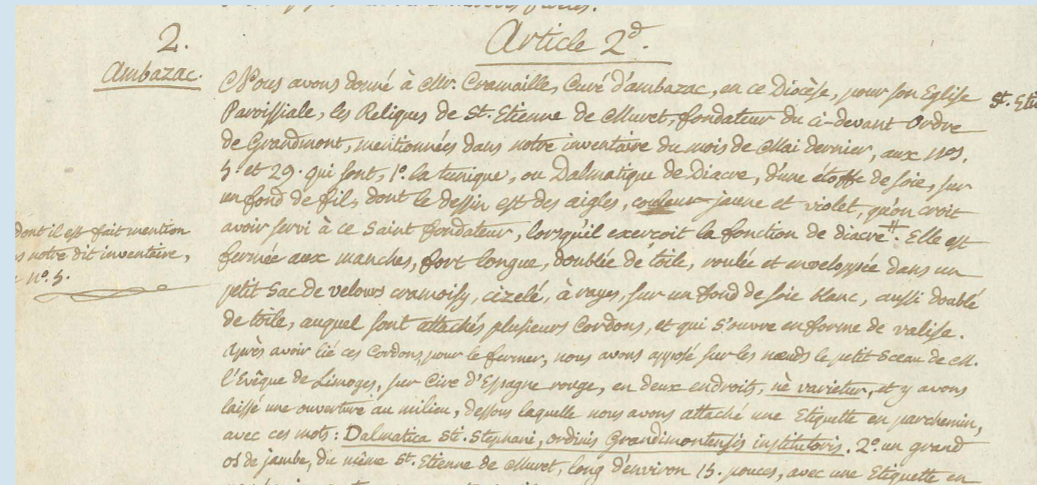 2.
Ambazac.
Article 2d.
Nous avons donné à Mr. Cramaille, Curé d'ambazac, en ce Diocèse, pour son Eglise
Paroissiale, les Reliques de St. Etienne de Muret, fondateur du ci-devant Ordre
de Grandmont, mentionnées dans notre inventaire du mois de Mai dernier, aux Nos.
5. et 29. qui sont, 1º. la tunique, ou Dalmatique de Diacre, d'une étoffe de soie, sur
un fond de fil, dont le dessin est des aigles, couleur jaune et violet, qu'on croit
avoir servi à ce Saint fondateur, lorsqu'il exerçoit la fonction de diacre #. Elle est
fermée aux manches, fort longue, doublée de toile, roulée et enveloppée dans un
petit Sac de velours cramoisy, cizelé, à rayes, sur un fond de soie blanc, aussi doublé
de toile, auquel sont attachés plusieurs Cordons, et qui s'ouvre en forme de valise.
Après avoir lié ces Cordons, pour le fermer, nous avons apposé sur les nœuds le petit Sceau de M.
l'Evêque de Limoges, sur Cire d'Espagne rouge, en deux endroits, nè varietur, et y avons
laissé une ouverture au milieu, dessous laquelle nous avons attaché une Etiquette en parchemin,
avec ces mots: Dalmatica Sti. Stephani, ordinis Grandimontensis institutoris. 2º. un grand
os de jambe, du même St. Etienne de Muret, long d'environ 15. pouces, avec une Etiquette en
dont il est fait mention
notre dit inventaire,
nº. 5.
St. Eti